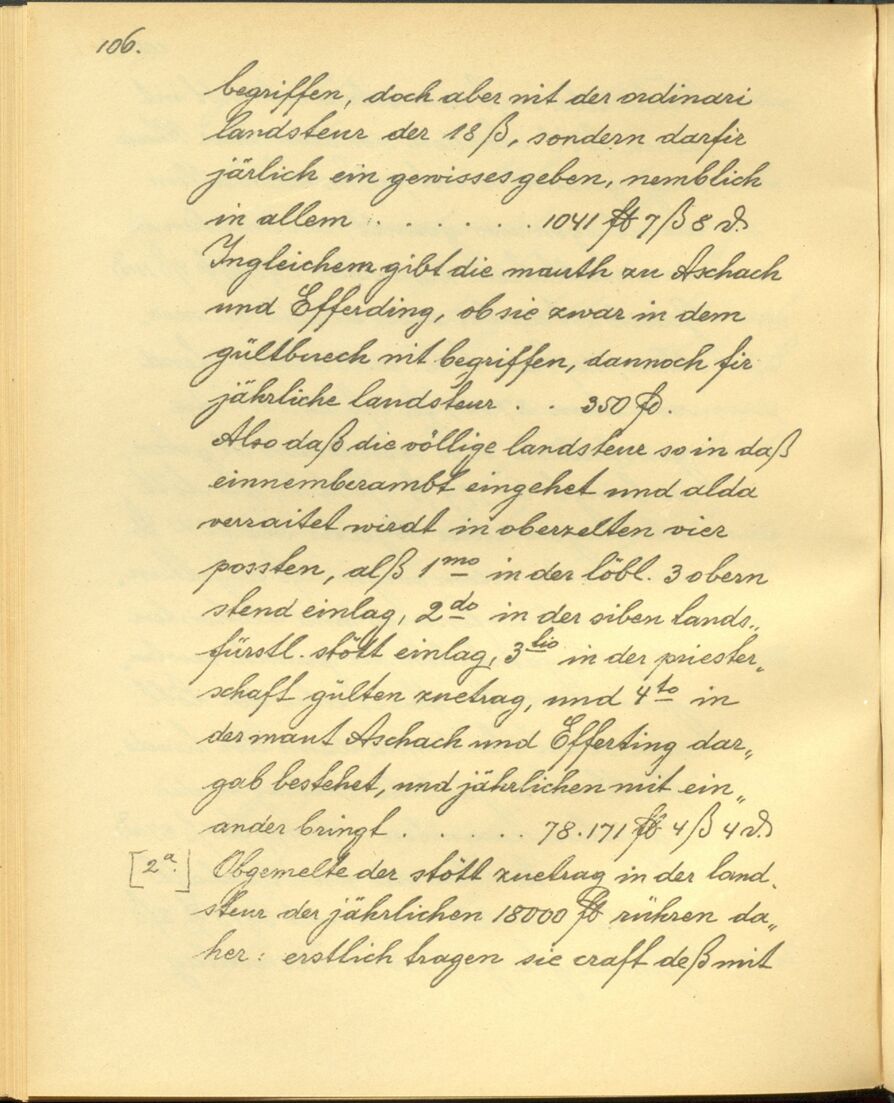 106.
begriffen, doch aber nit der ordinari
landsteur der 18 ß, sondern darfir
järlich ein gewisses geben, nemblich
in allem . . . . . . 1041 ℔ 7 ß 8 ₰
Ingleichem gibt die mauth zu Aschach
und Efferding, ob sie zwar in dem
gültbuech nit begriffen, dannoch fir
jährliche landsteur . . 350 ℔.
Also daß die völlige landsteur so in daß
einnemberambt eingehet und alda
verraitet wirdt in oberzelten vier
possten, alß 1mo in der löbl. 3 obern
stend einlag, 2do in der siben lands„
fürstl. stött einlag, 3tio in der priester„
schaft gülten zuetrag, und 4to in
der maut Aschach und Efferting dar„
gab bestehet, und jährlichen mit ein„
ander bringt . . . . . . 78.171 ℔ 4 ß 4 ₰
[2a.] Obgemelte der stött zuetrag in der land„
steur der jährlichen 18000 ℔ rühren da„
her: erstlich tragen sie craft deß mit